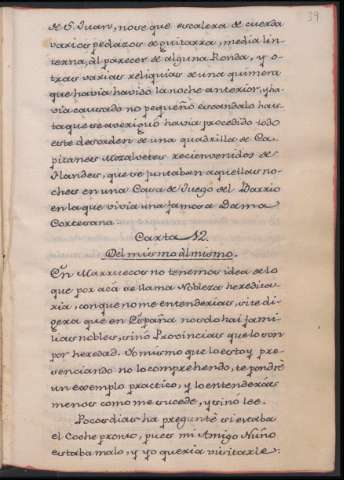 39
de S. Juan, no se que escalera de cuerda
varios pedazos de guitarra, media lin-
terna, al parecer de alguna Ronda, y o-
tras varias reliquias de una quimera
que havia havido la noche anterior, y ha-
via causado no pequeño escandalo has-
ta que se averiguó havia procedido todo
este desorden de una quadrilla de Ca-
pitanes Mozalvetes recienvenidos de
Flandes, que se juntaban aquellas no-
ches en una Casa de Juego del Barrio
en la que vivia una famosa Dama
Cortesana
Carta 12.
Del mismo àl mismo.
En Marruecos no tenemos idea de lo
que por acá se llama Nobleza heredita-
ria, con que no me entenderias, si te di-
gera que en España no solo hai fami-
lias nobles, sinó Provincias que lo son
por heredad. Yo mismo que lo estoy pre-
senciando no lo comprehendo, te pondré
un exemplo practico, y lo entenderás
menos como me sucede, y sinó lee.
Pocos dias ha pregunté si estaba
el Coche pronto, pues mi Amigo Nuño
estaba malo, y yo queria visitarle: